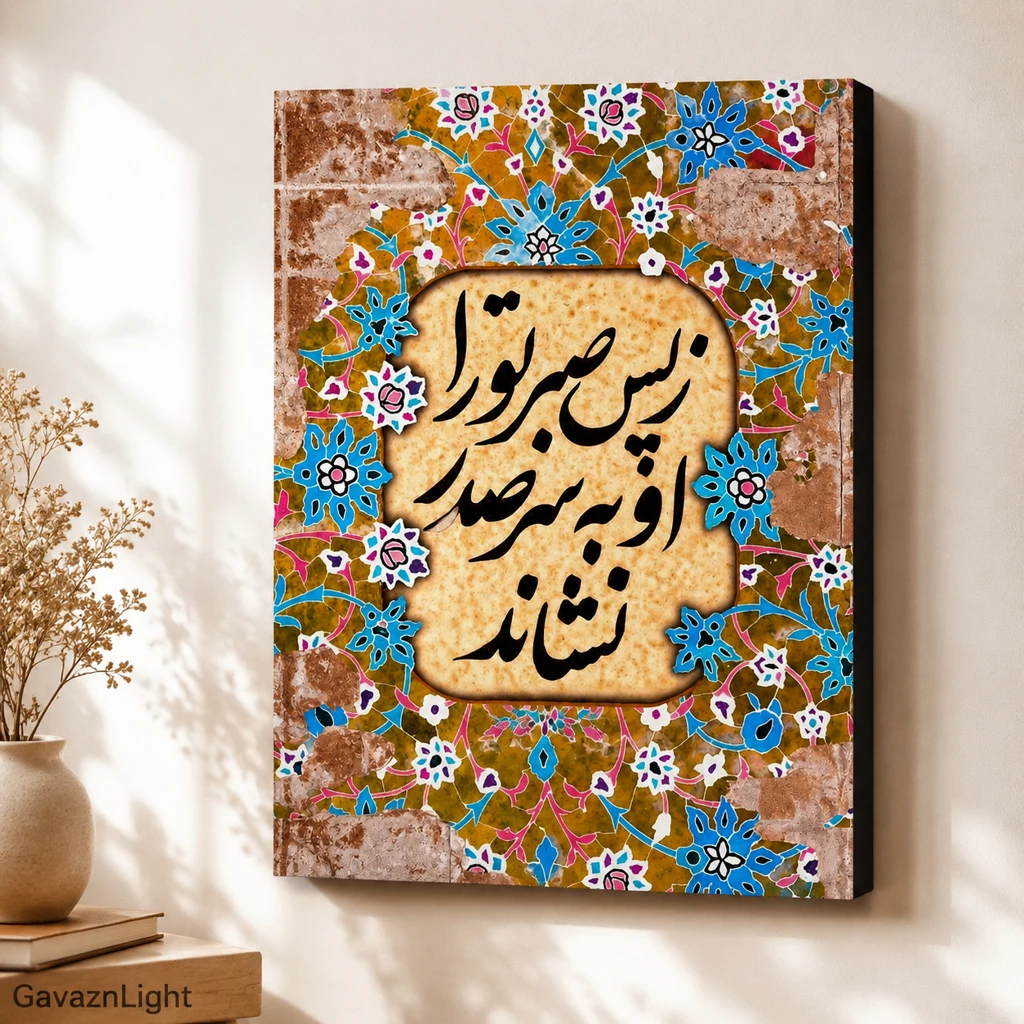 ز پس صبر تو را
او به سر صدر
نشاند
GavaznLight